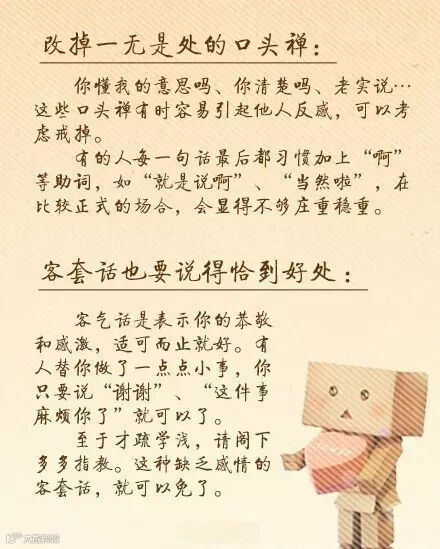 改掉一无是处的口头禅：
你懂我的意思吗、你清楚吗、老实说…
这些口头禅有时容易引起他人反感，可以考
虑戒掉。
有的人每一句话最后都习惯加上“啊”
等助词，如“就是说啊”、“当然啦”，在
比较正式的场合，会显得不够庄重稳重。
客套话也要说得恰到好处：
客气话是表示你的恭敬
和感激，适可而止就好。有
人替你做了一点点小事，你
只要说“谢谢”、“这件事
麻烦你了”就可以了。
至于才疏学浅，请阁下
多多指教。这种缺乏感情的
客套话，就可以免了。